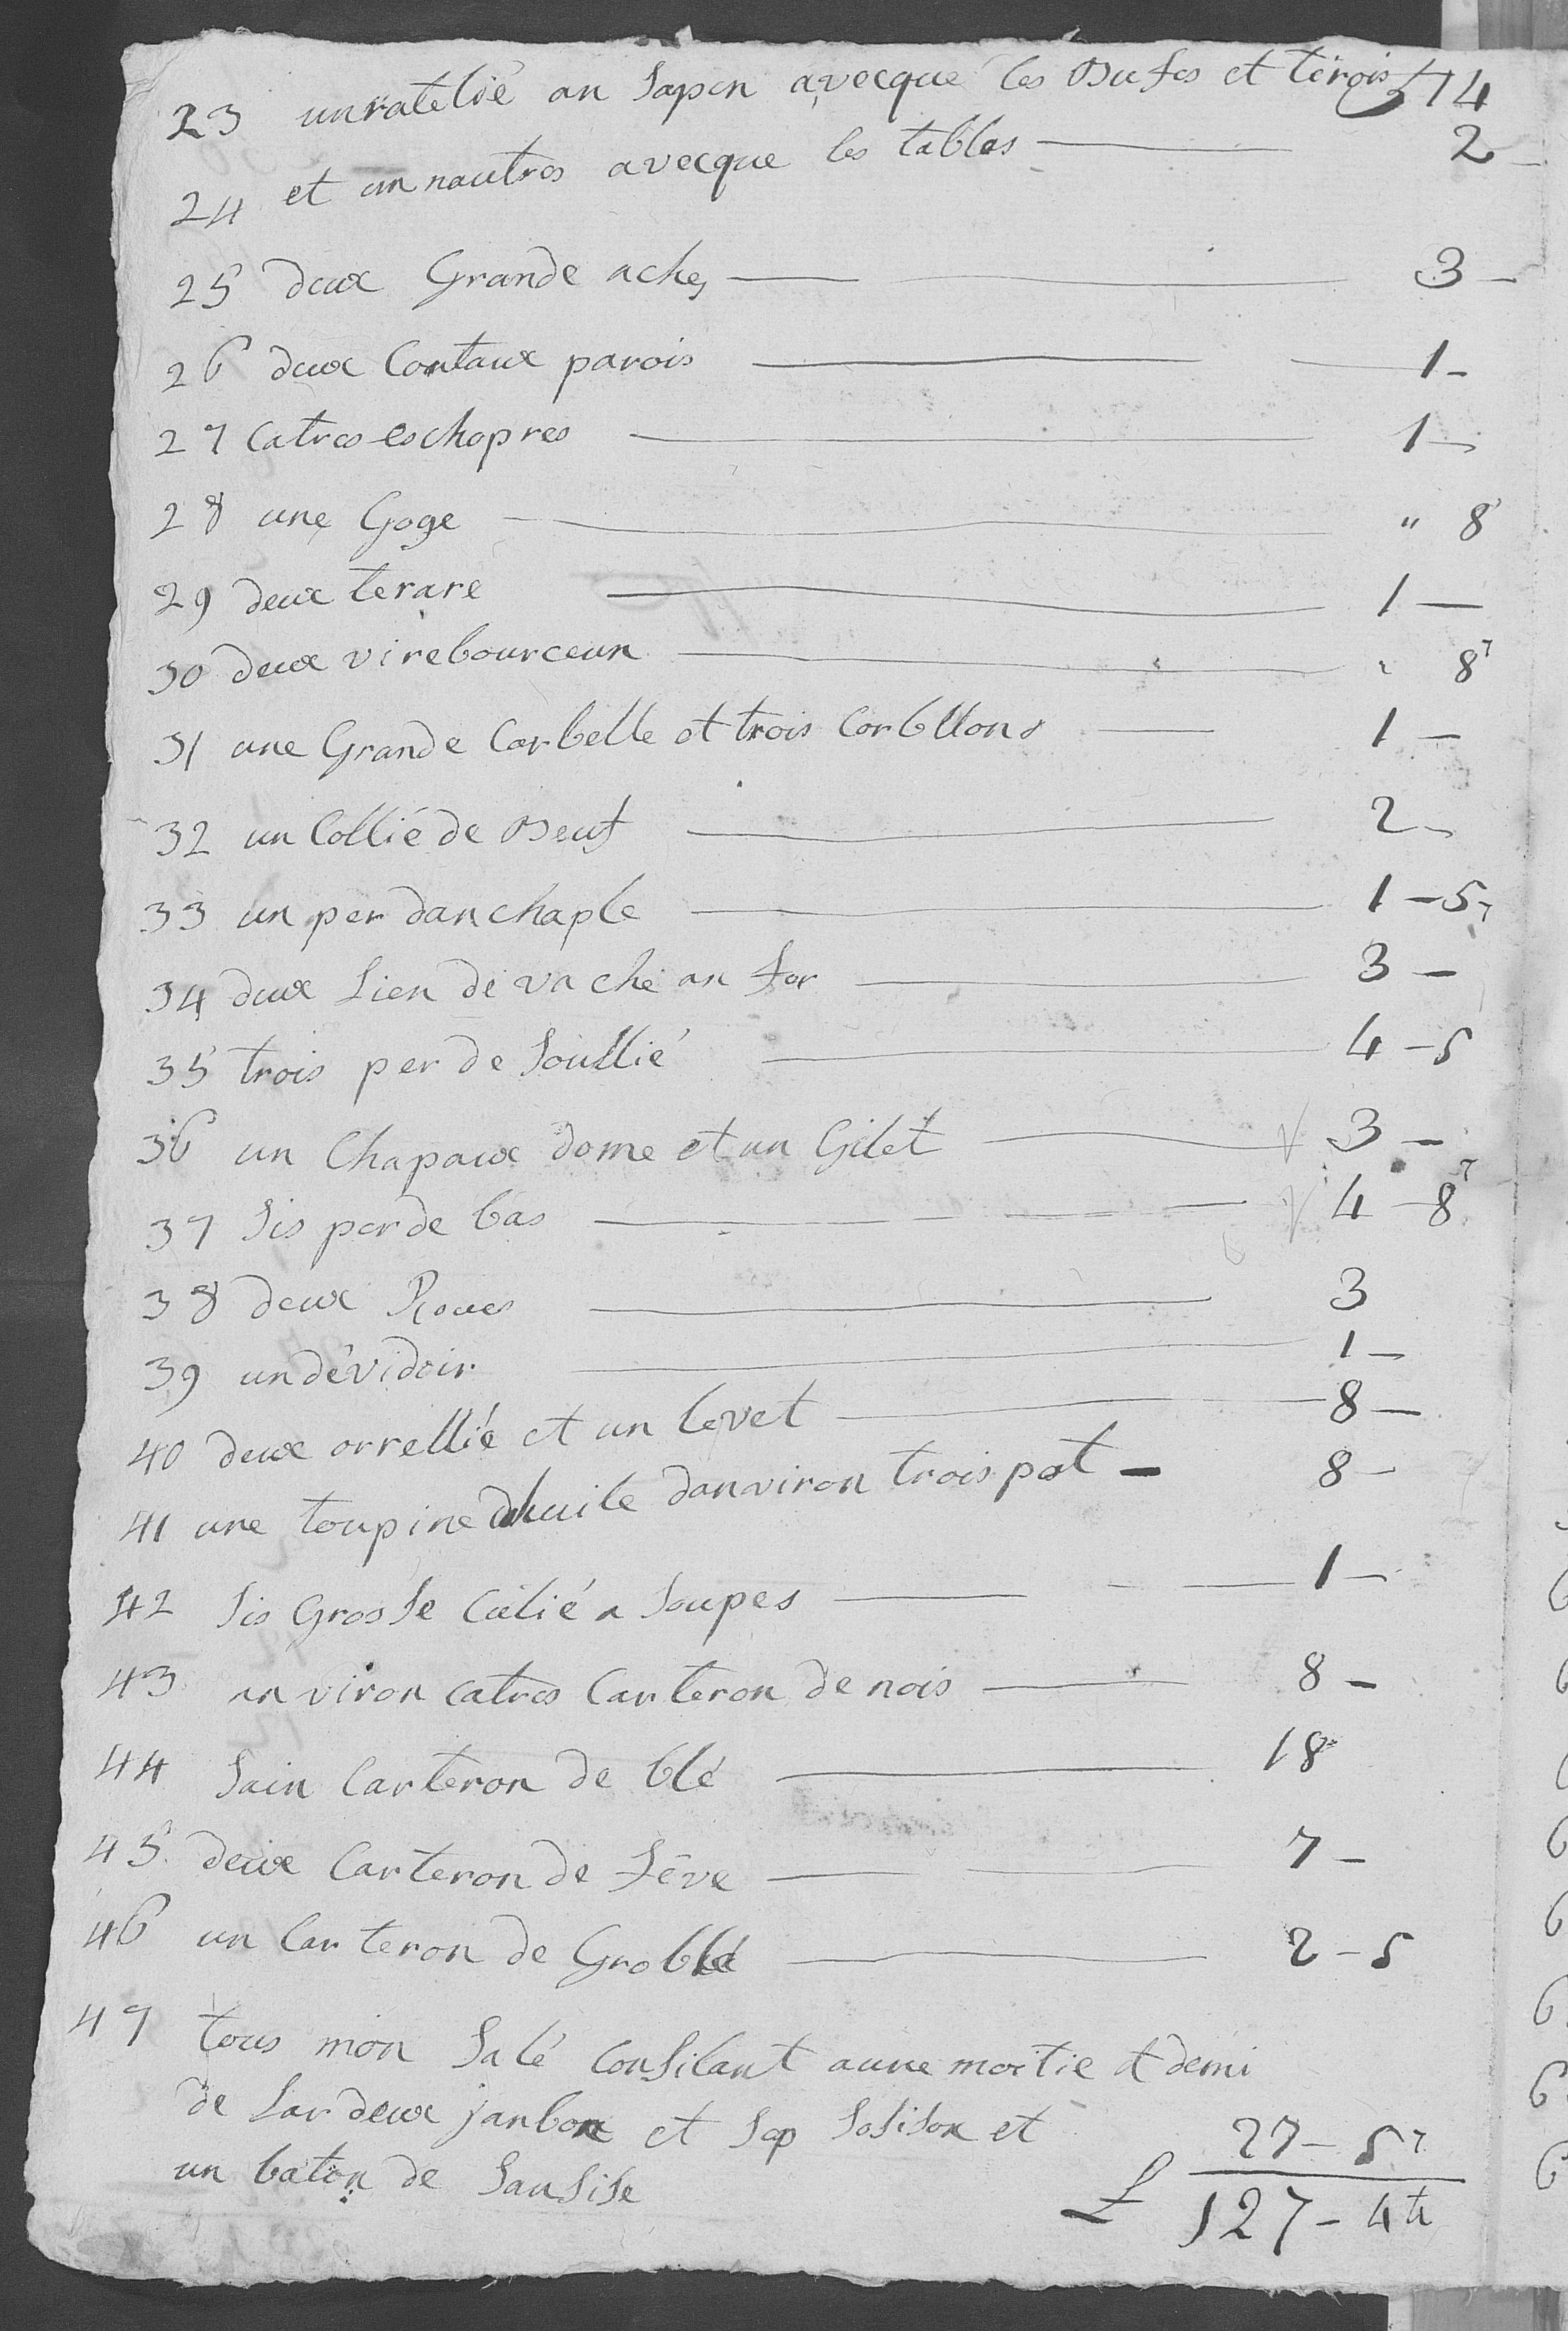 23 un ratelié an Sapen avecque les Butes et tirois 14
24 et un nautres avecque les tables — 2 —
25 deux Grande ache, — 3 —
26 deux Coutaux parois — 1 —
27 Catres eschopres — 1 —
28 une Goge — " 8
29 deux terare — 1 —
30 deux virebourceun — " 8
31 une Grande Corbelle et trois Corbllons — 1 —
32 un Collié de Beuf — 2 —
33 un per danchaple — 1 — 5
34 deux Lien de vache an fer — 3 —
35 trois per de Soullié — 4 — 5
36 un Chapaux dome et un Gilet — 3 —
37 Sis per de bas — 4 — 8
38 deux Roues — 3
39 un dévidoir — 1 —
40 deux orrellié et un levet — 8 —
41 une toupine dhuile danviron trois pot — 8 —
42 Sis Grosse Culié a Soupes — 1 —
43 anviron catres Carteron de nois — 8 —
44 Sain Carteron de blé — 18
45 deux Carteron de fêve — 7 —
46 un Carteron de Groblé — 2 — 5
47 tous mon Salé Consilant aune moitie et demi
de Lar deux janbon et Sep Sosison et
un baton de Sausise 27 — 5
£ 127 — 4